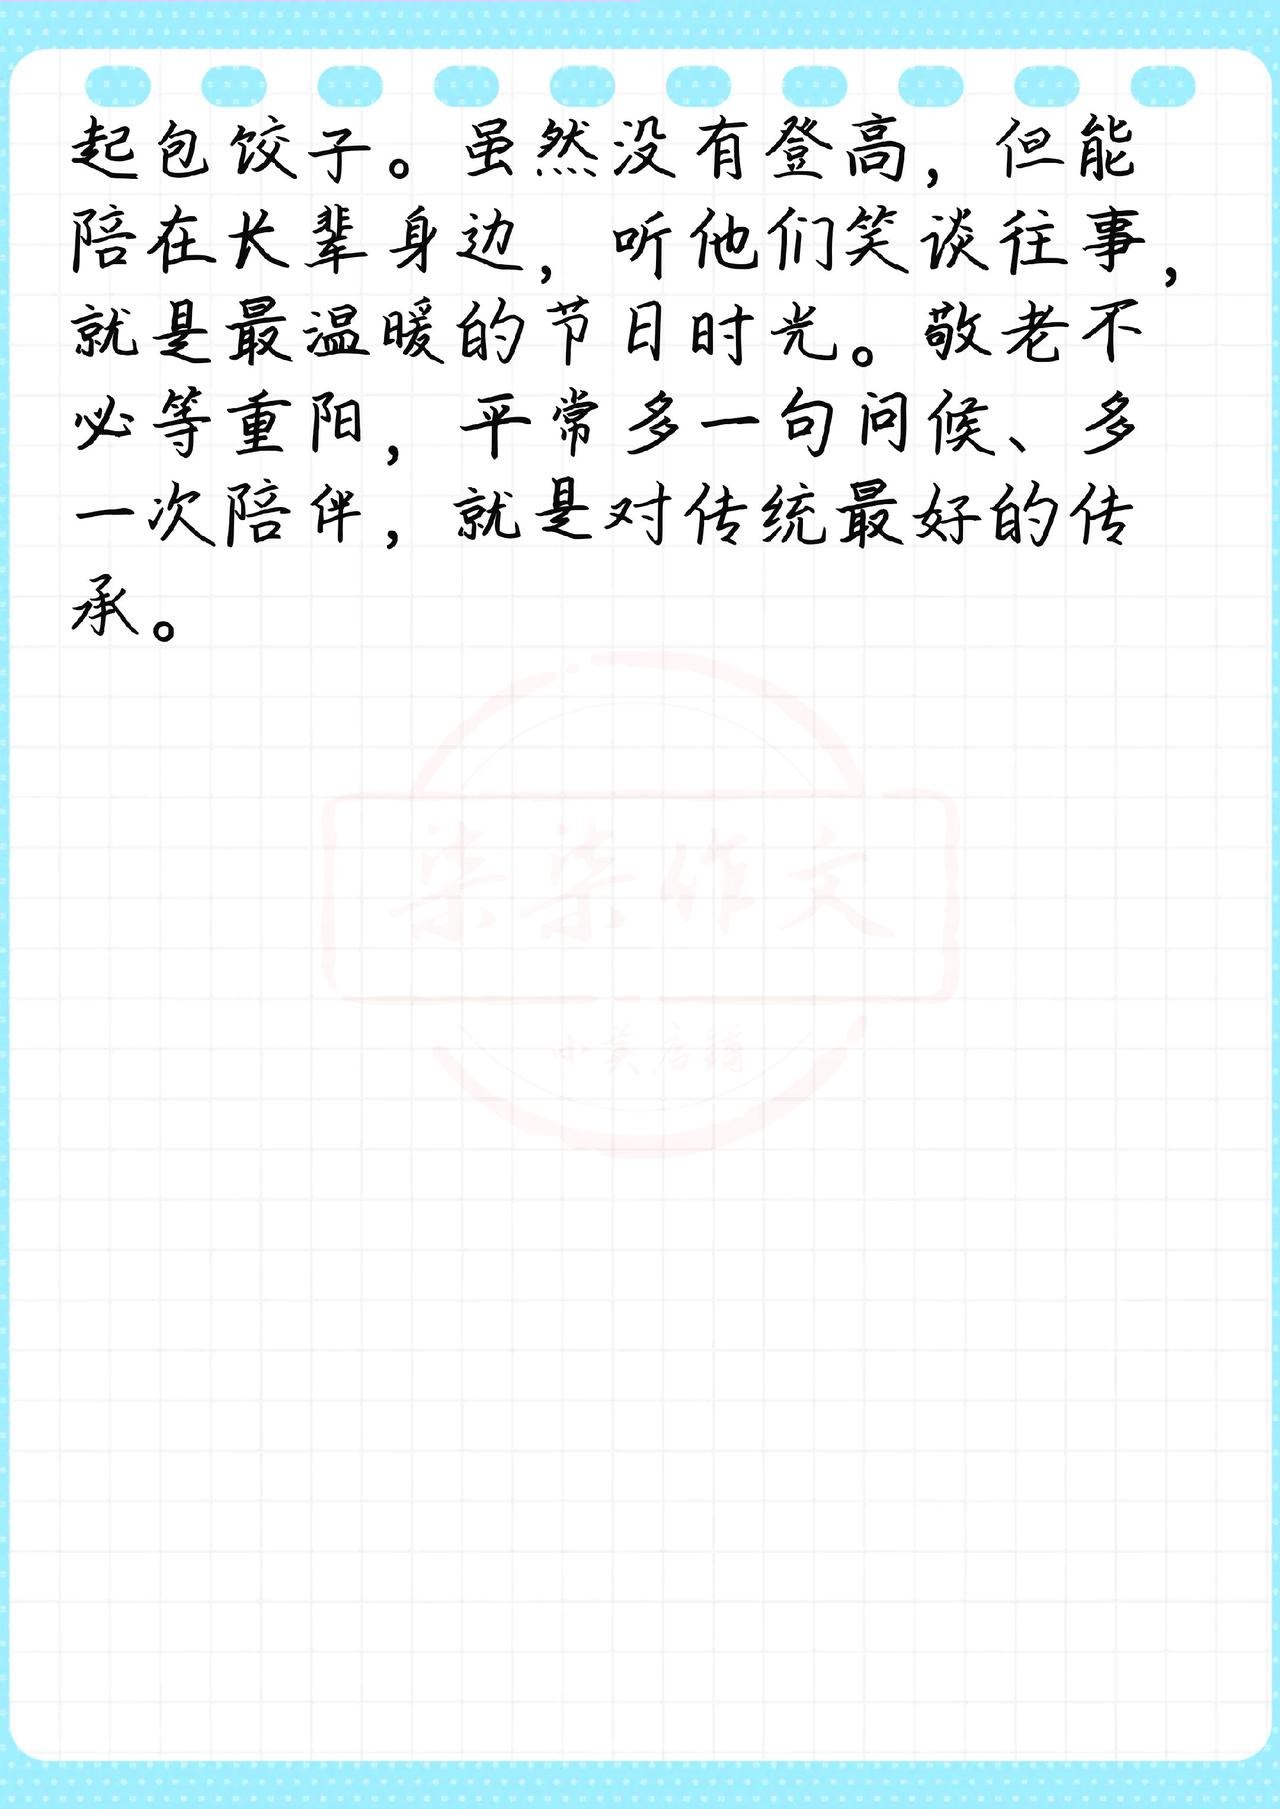 起包饺子。虽然没有登高，但能
陪在长辈身边，听他们笑谈往事，
就是最温暖的节日时光。敬老不
必等重阳，平常多一句问候、多
一次陪伴，就是对传统最好的传
承。
柒柒作文
小黄店铺